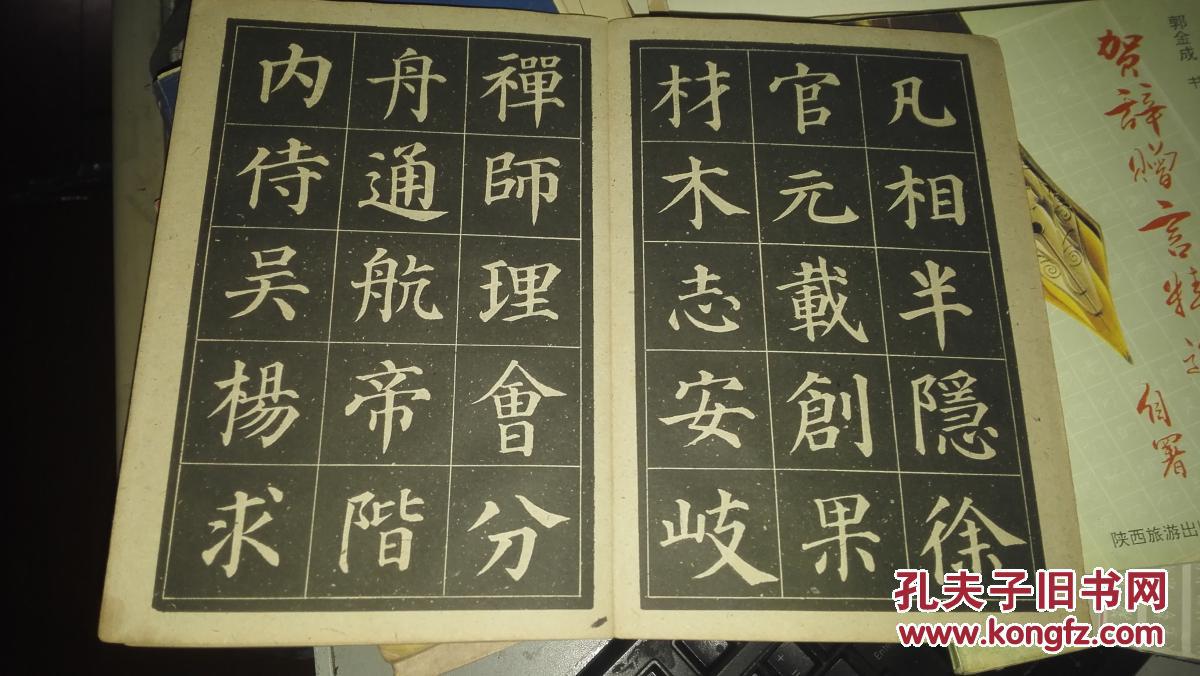 凡相半隱徐
官元載創果
材木志安岐
禪師理會分
舟通航帝階
内侍吴楊求
郭金成 书
贺辞赠言精选
自署
陕西旅游出
孔夫子旧书网
www.kongfz.com